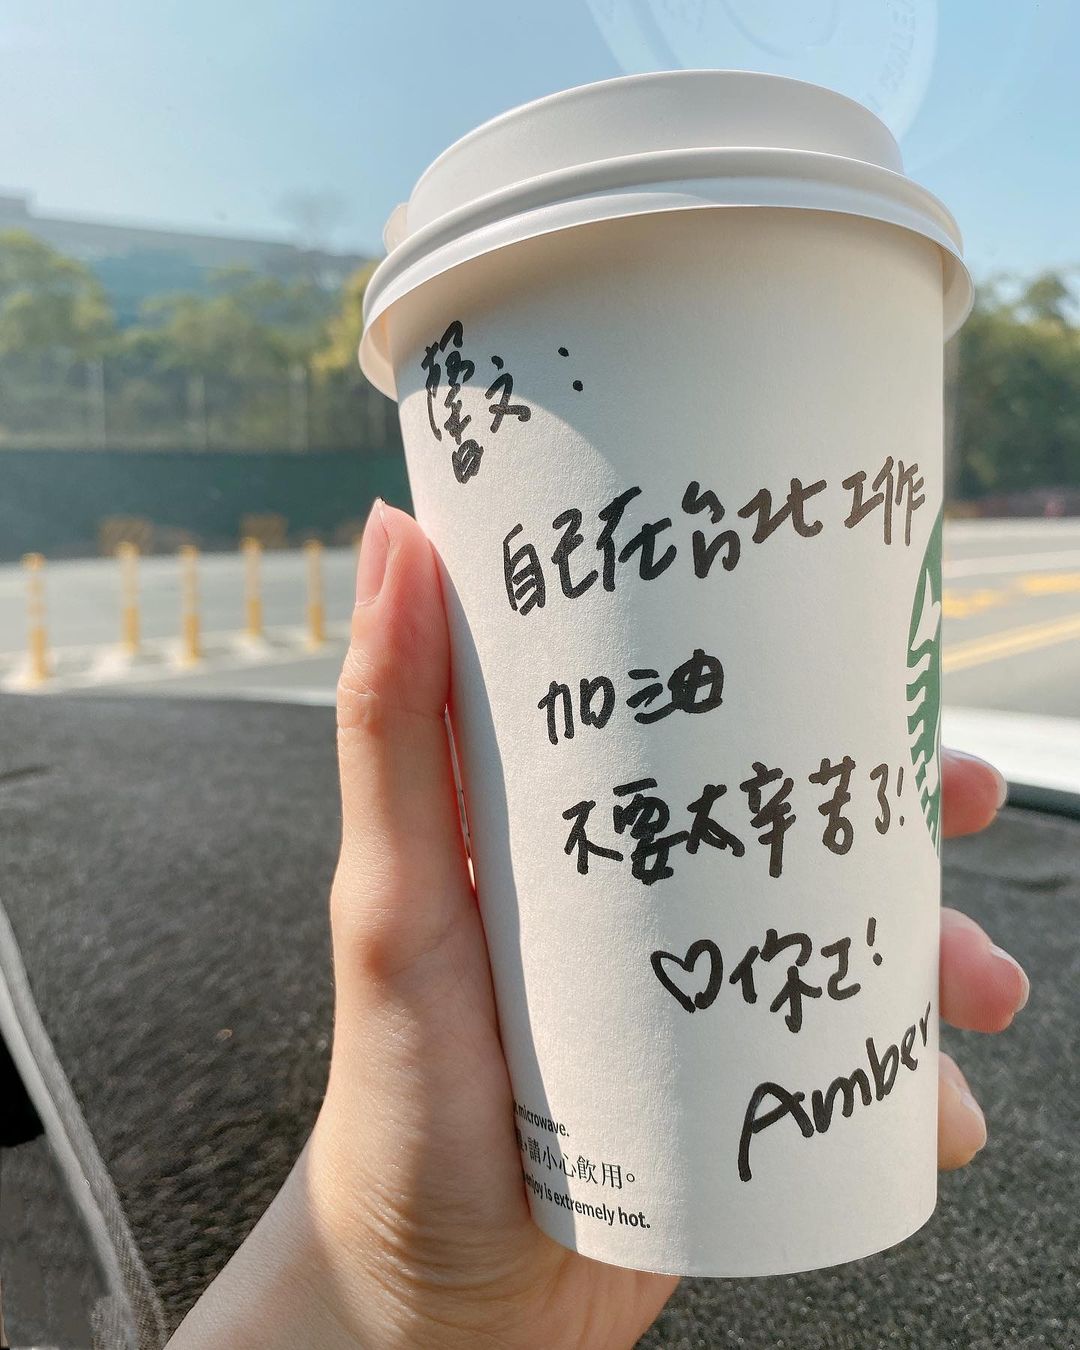 馨文：
自己在台北工作
加油
不要太辛苦了!
♡你ㄛ!
Amber
microwave.
,請小心飲用。
enjoy is extremely hot.